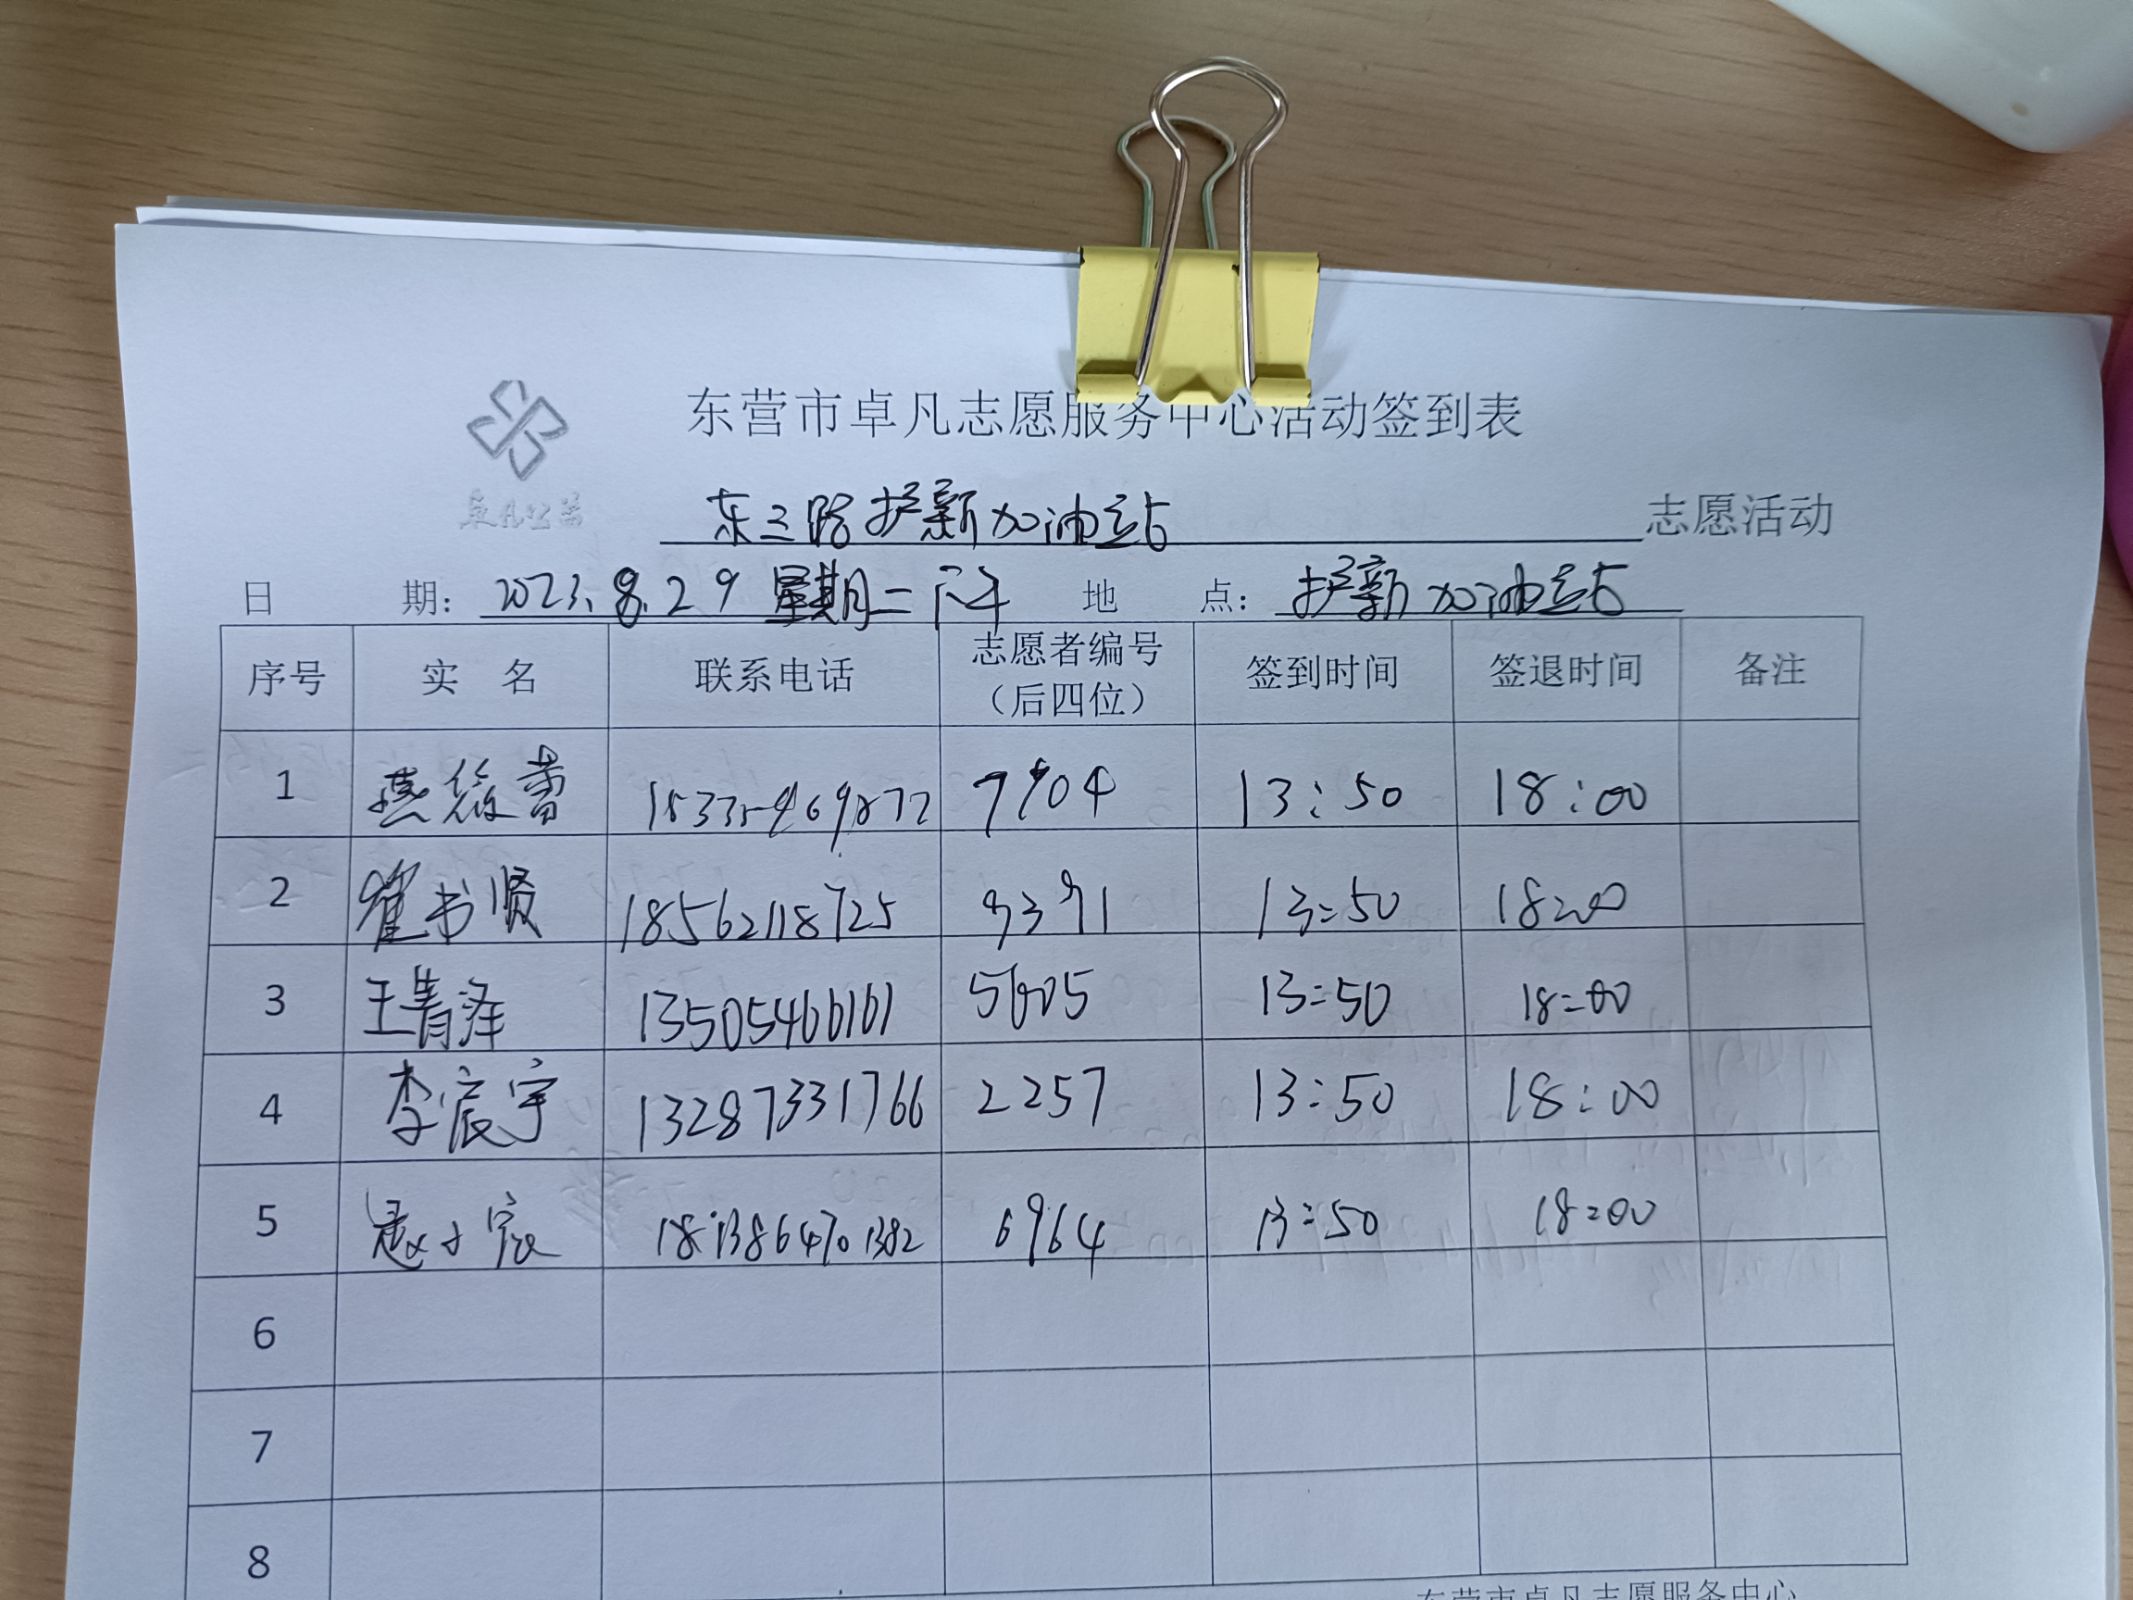 东营市卓凡志愿服务中心活动签到表
卓凡公益
东三路护新加油站 志愿活动
日 期: 2023.8.29 星期二下午 地 点: 护新加油站
序号 实 名 联系电话 志愿者编号(后四位) 签到时间 签退时间 备注
1 7904 13:50 18:00
2 崔书贤 18562118725 9391 13:50 18:00
3 王青泽 13505466161 5605 13:50 18:00
4 李宸宇 13287331766 2257 13:50 18:00
5 6964 13:50 18:00
6
7
8
东营市卓凡志愿服务中心